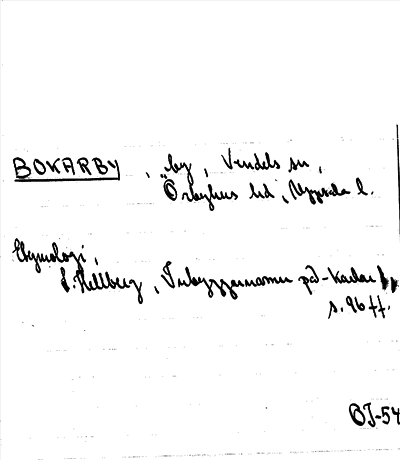 BOKARBY, by, Vendels sn,
Örbyhus hd, Uppsala l.
Etymologi,
L. Hellberg, Inbyggarnamn på -karlar,
s. 96 ff.
BJ-54